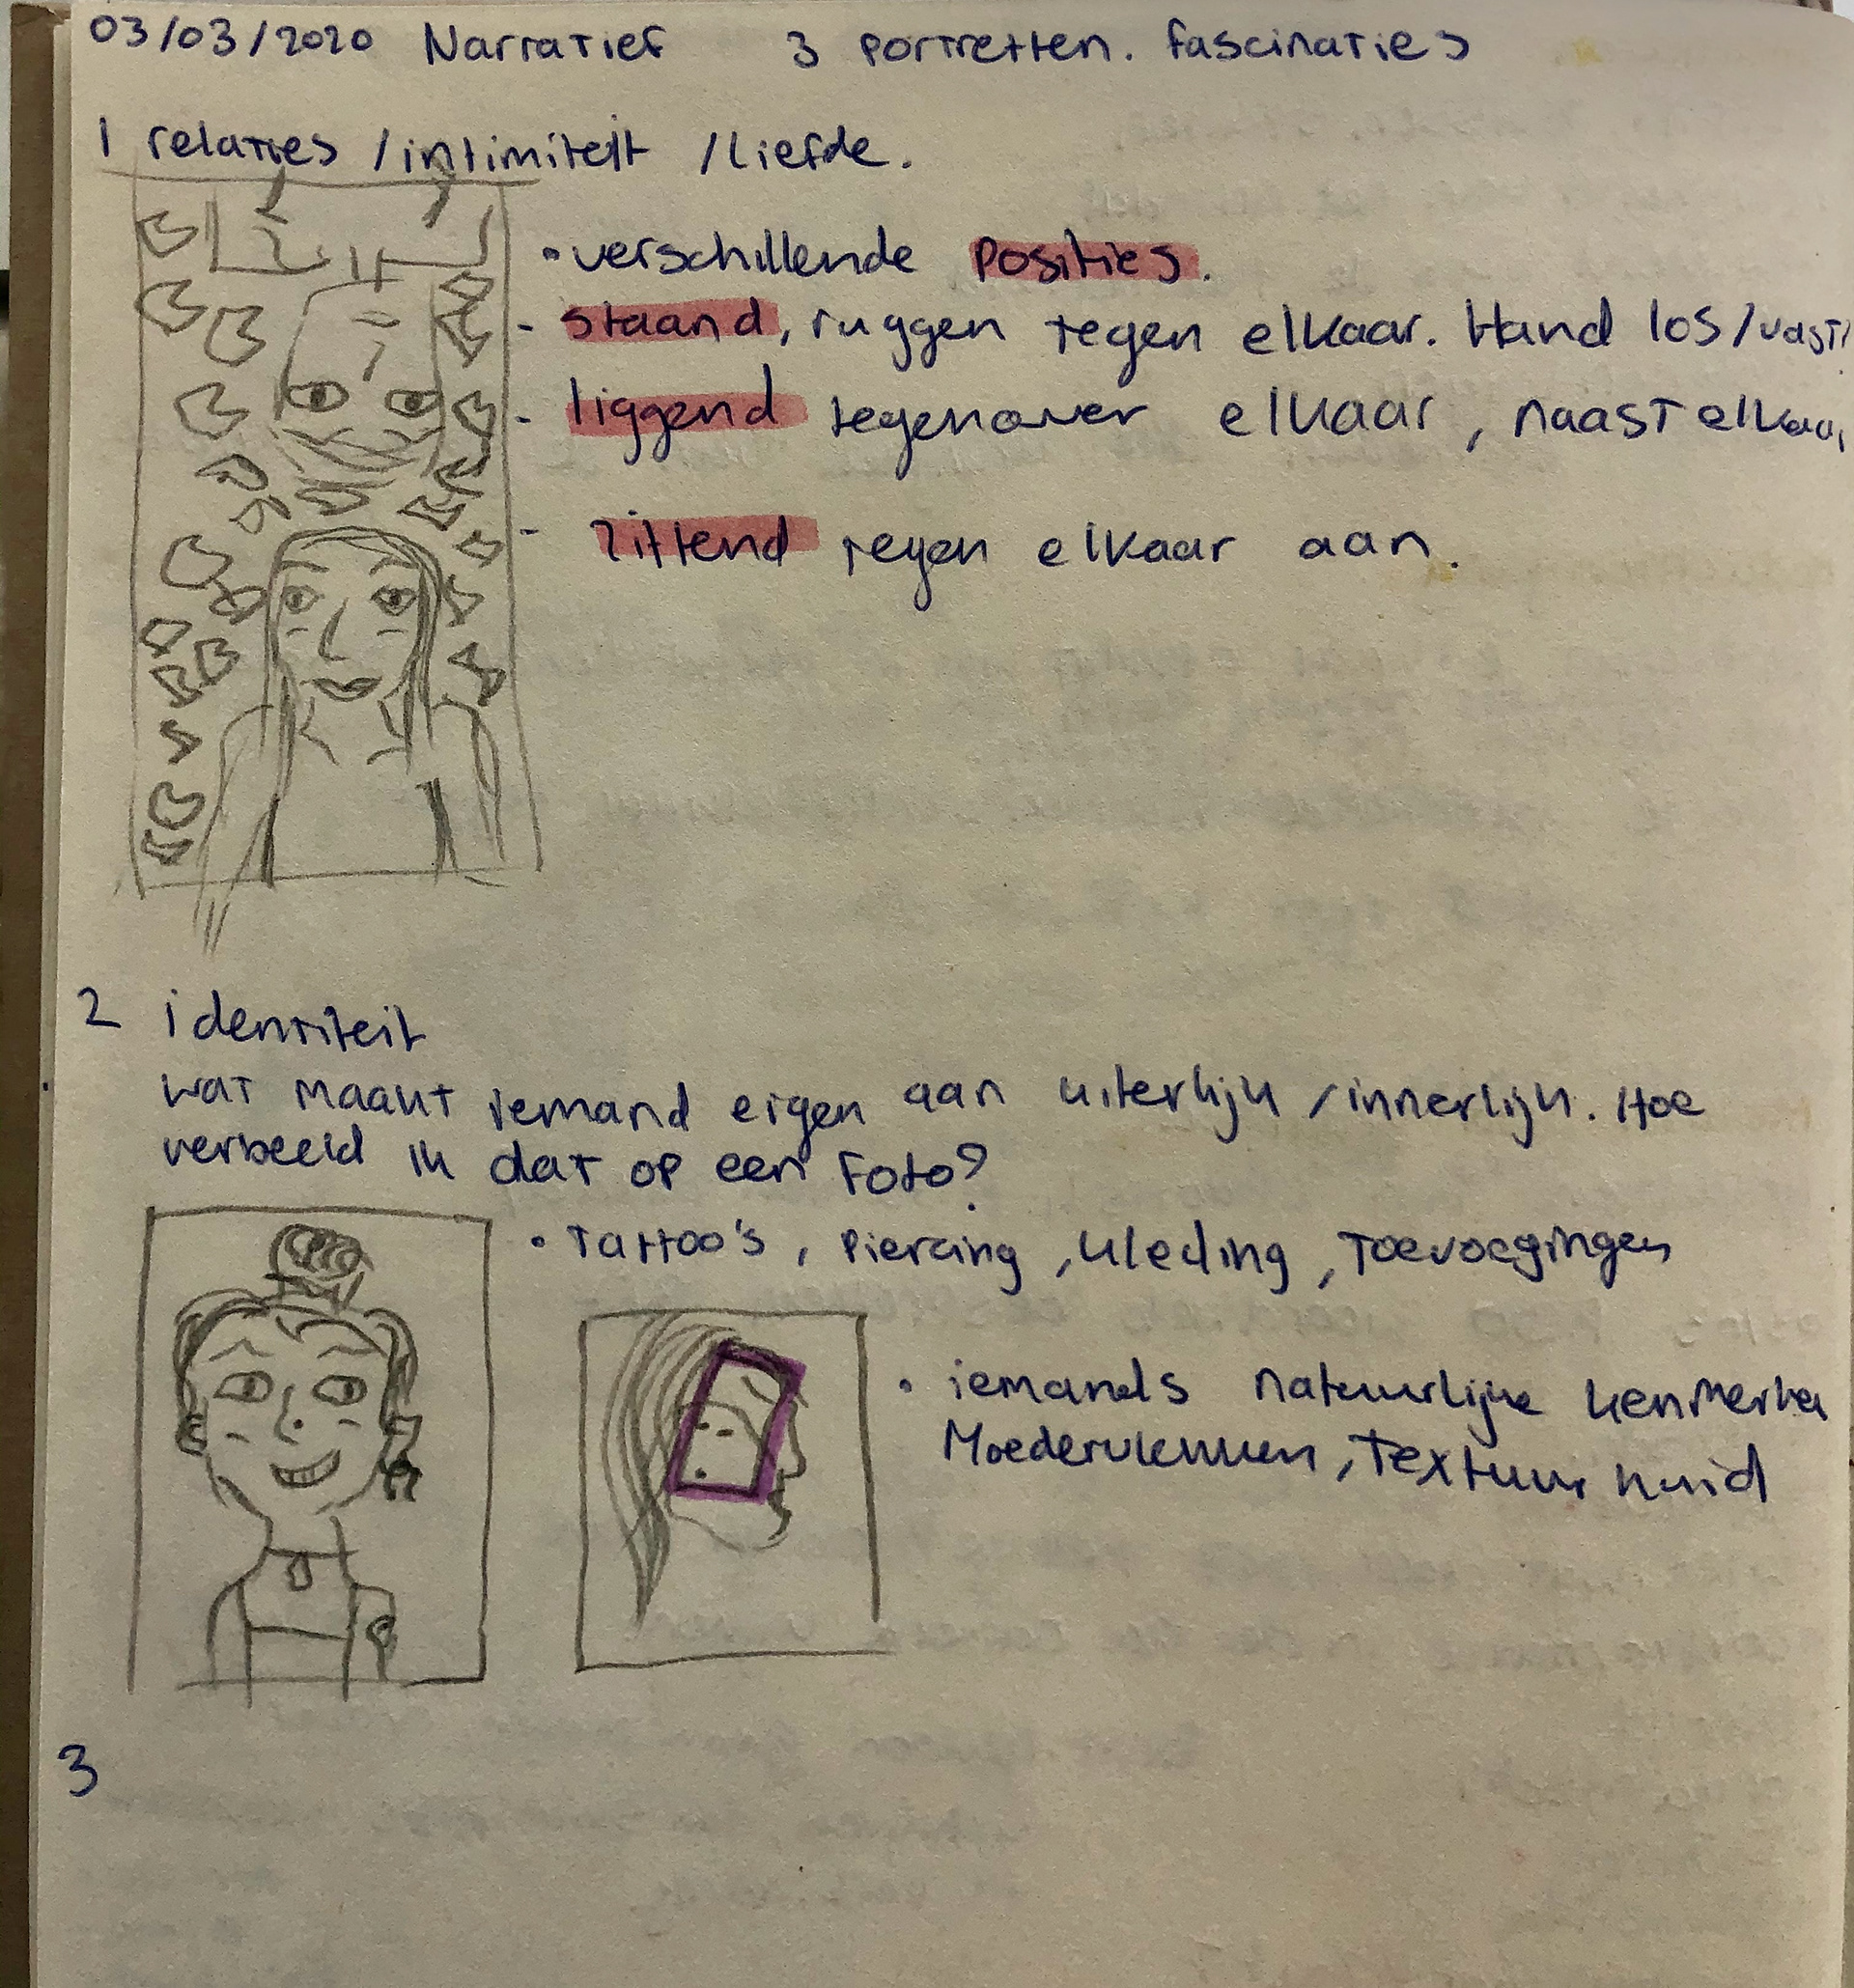 03/03/2020 Narratief 3 portretten. fascinaties
1 relaties /intimiteit /liefde.
• verschillende posities.
- staand, ruggen tegen elkaar. Hand los/vast?
- liggend tegenover elkaar, naast elkaar
- zittend tegen elkaar aan.
2 identiteit
wat maakt iemand eigen aan uiterlijk /innerlijk. Hoe
verbeeld ik dat op een foto?
• Tattoo's, piercing, kleding, toevoegingen
• iemands natuurlijke kenmerken
Moedervlekken, textuur huid
3